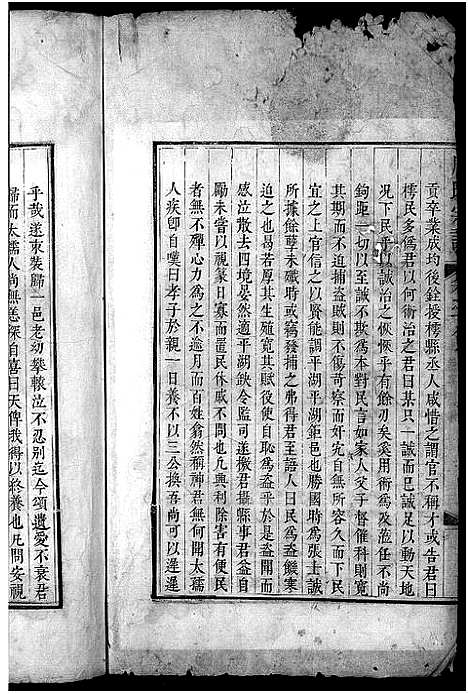 貢卒業成均後銓授樗縣丞人咸惜之謂官不稱才或告君曰
樗民多僞君以何術治之君曰某只一誠而已誠足以動天地
况下民乎以誠治之恢恢乎有餘刃矣奚用術爲及涖任不尚
鉤距一切以至誠不欺爲本對民言如家人父子督催科則寛
其期而不迫捕盗賊則不傷苛察而奸宄自無所容久而下民
宜之上官信之以賢能調平湖平湖鉅邑也勝國時爲張士誠
所據餘孽未殲時或竊發捕之弗得君至語人曰民爲饑寒
迫之也於是若厚其生殖寛其賦役使自耻爲盗於是盗聞而
感泣散去四境晏然適平湖欽令監司遂檄君攝縣事君益自
勵未嘗以視篆日寡而置民休戚于不問也凡興利除害有便民
者無不殫心力爲之不逾月而百姓翕然稱神君無何聞太孺
人疾即自嘆曰孝子於親一日養不以三公換吾尚可以遲遲
乎哉遂束裝歸一邑老幼攀轅泣不忍别迄今頌遺愛不衰君
歸而太孺人尚無恙深自喜曰天俾我得以終養也凡問安視